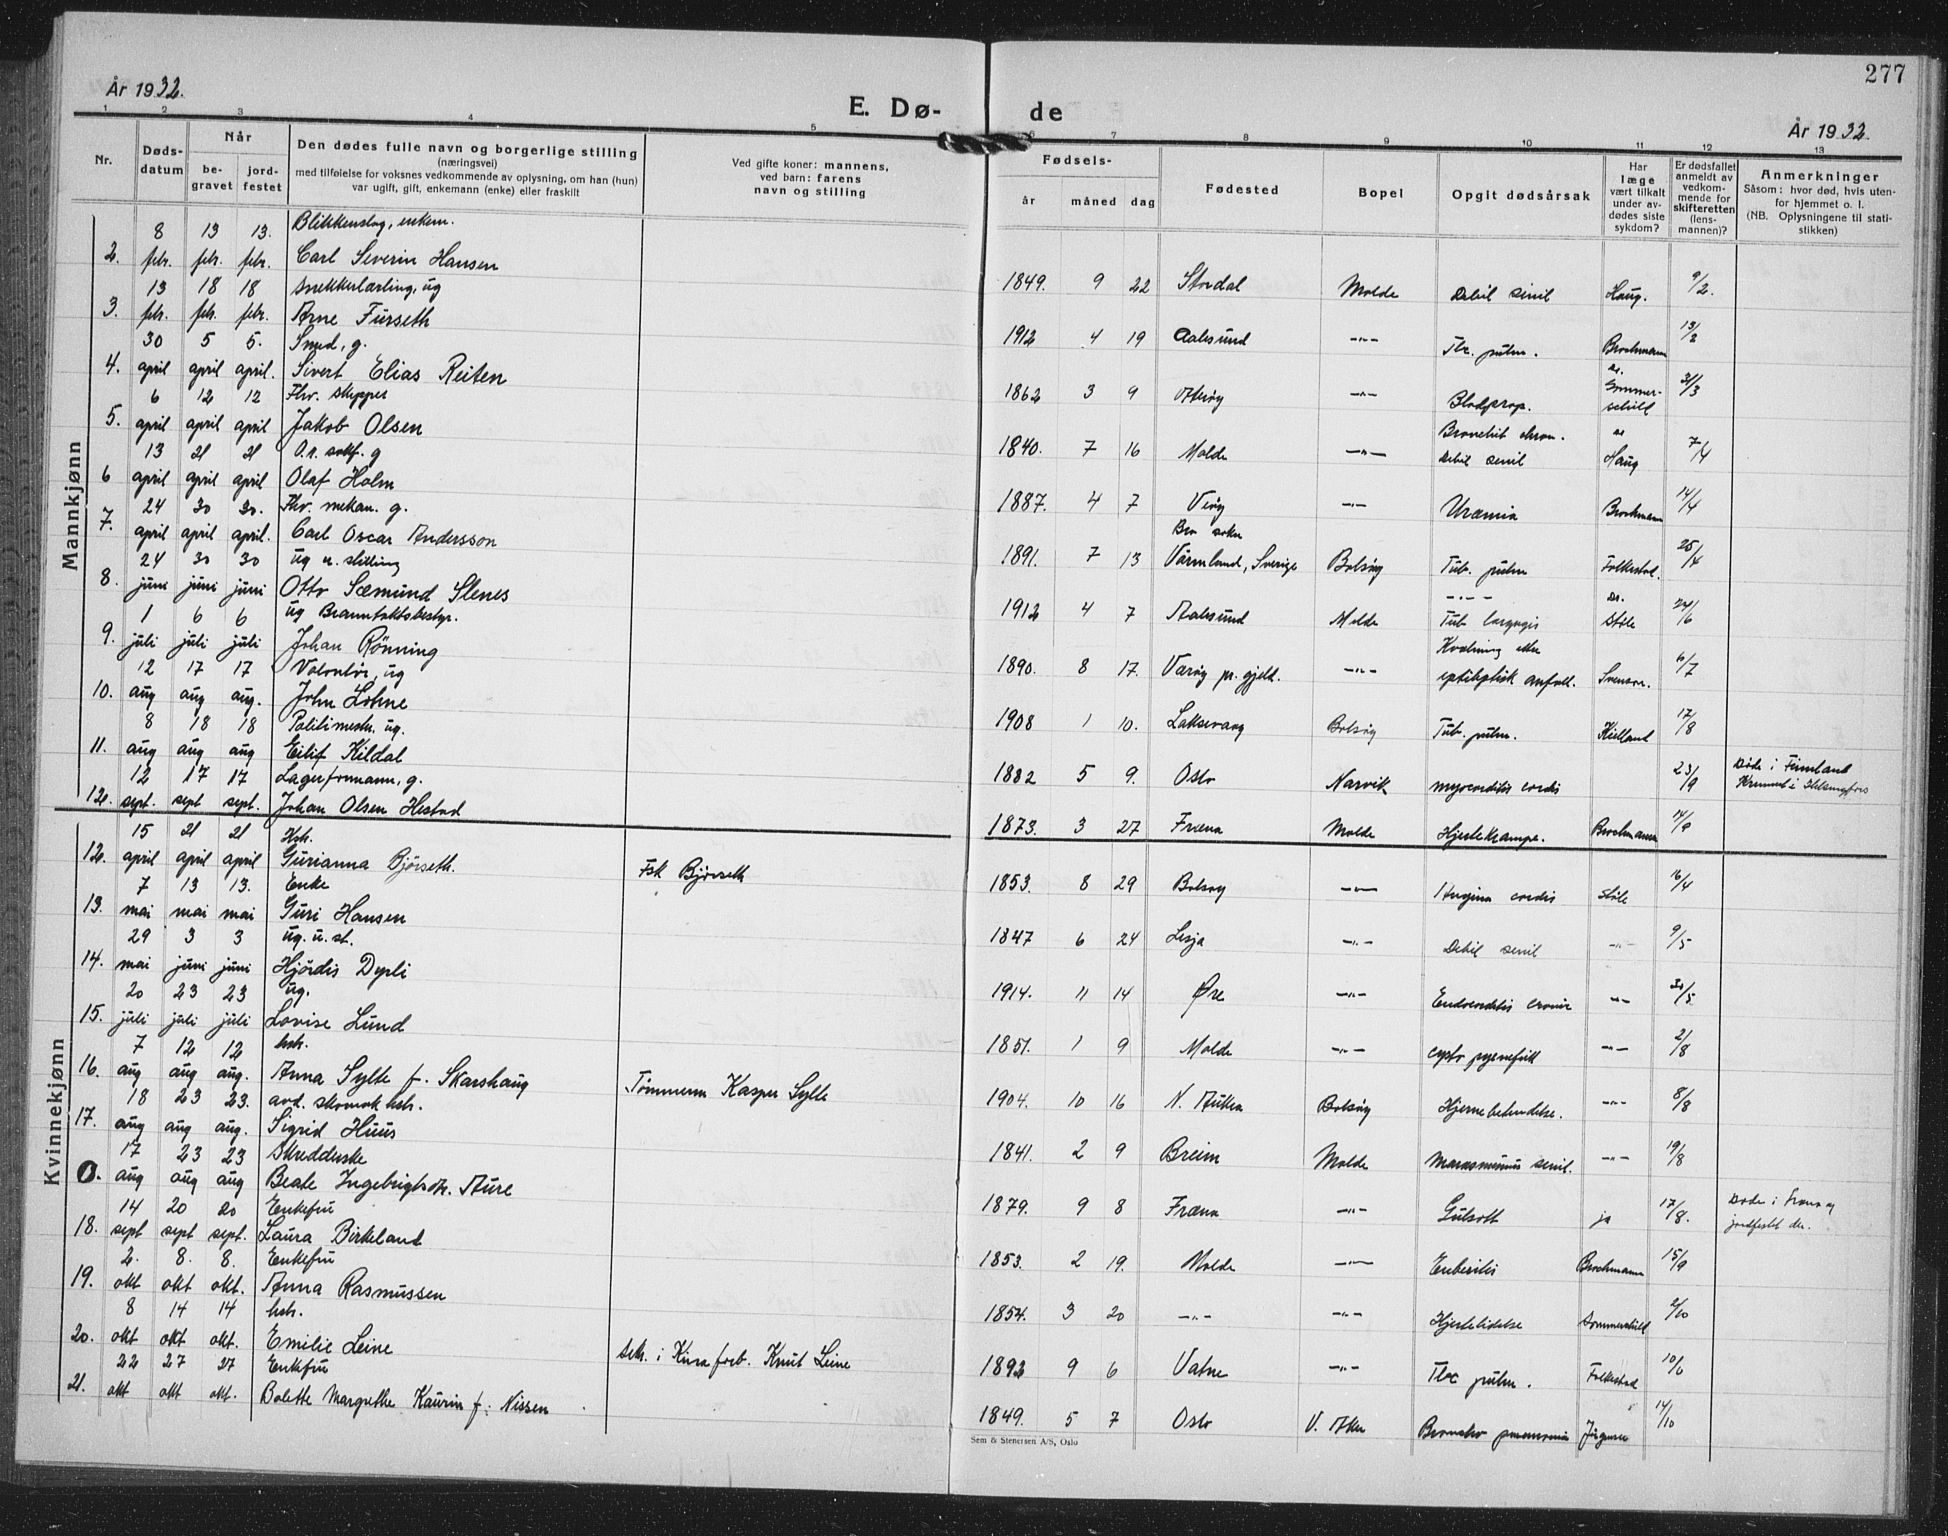 277
År 1932.
E. Dø-
de
År 1932.
1 2 3 4 5
6 7 8 9 10 11 12 13
Nr.
Døds-
datum
Når
be-
gravet
jord-
festet
Den dødes fulle navn og borgerlige stilling
(næringsvei)
med tilføielse for voksnes vedkommende av oplysning, om han (hun)
var ugift, gift, enkemann (enke) eller fraskilt
Ved gifte koner: mannens,
ved barn: farens
navn og stilling
Fødsels-
år måned dag
Fødested
Bopel
Opgit dødsårsak
Har
læge
vært tilkalt
under av-
dødes siste
sykdom?
Er dødsfallet
anmeldt av
vedkom-
mende for
skifteretten
(lens-
mannen)?
Anmerkninger
Såsom: hvor død, hvis uten-
for hjemmet o. l.
(NB. Oplysningene til stati-
stikken)
Mannkjønn
8 13 13. Blikkenslag, enkem.
2. febr. febr. febr. Carl Severin Hansen
1849. 9 22 Stordal Molde Debil senil Haug. 9/2.
13 18 18 snekkerlærling, ug
3. febr. febr. febr. Arne Furseth
1912 4 19 Aalesund -"- Tbc. pulm. Brochmann 13/2
30 5 5. Smed, g.
4. april april april. Sivert Elias Reiten
1862 3 9 Otrøy -"- Blodprop. Dr. Sommer-
schild 31/3
6 12 12 Fhv. skipper
5. april april april Jakob Olsen
Bronchit chron.
1840. 7 16 Molde -"- Debil senil Dr Haug 7/4
13 21 21 O.r. sakf. g
6 april april april Olaf Holm
1887. 4 7 Vigdis -"- Uræmia Brochmann 14/4
24 30 30. Fhv. mekan. g.
7. april april april. Carl Oscar Andersson
Bro sokn
1891. 7 13 Värmland, Sverige Bolsøy Tub. pulm Folkestad. 25/4
24 30 30 ug u. stilling
8. juni juni juni Otto Sæmund Slenes
1912 4 7 Aalesund Molde Tub laryngis Dr. Støle 24/6
1 6 6 ug Branntakstbestyr.
9. juli juli juli Johan Rönning
Kvælning etter
1890. 8 17. Værøy pr. gjeld. -"- epileptisk anfall. Svensen. 6/7
12 17 17 Volontør, ug
10. aug aug aug. John Lohne
1908 1 10. Laksevaag Bolsøy Tub. pulm. Kielland 17/8
8 18 18 Politimestr. ug.
11. aug aug aug Eilif Kildal
1882 5 9. Oslo Narvik myocarditis cordis 23/9 Døde i Finnland
Kremert i Helsingfors
12 17 17 Lagerformann, g.
12. sept. sept sept. Johan Olsen Hestad
1873. 3 27 Fræna Molde Hjertekrampe. Brochmann 14/9
Kvinnekjønn
15 21 21 Hstr.
12. april april april Gurianna Bjørseth. Fsk Bjørseth
1853. 8 29 Bolsøy -"- Angina cordis Støle 16/4
7 13 13. Enke
13. mai mai mai Guri Hansen
1847 6 24 Lesja -"- Debil senil -"- 9/5
29 3 3 ug. u. st.
14. mai juni juni Hjördis Dyrli
1914. 11 14 Øre -"- Endocarditis cronic -"- 30/5
20 23 23 ug.
15. juli juli juli Lovise Lund
1851. 1 9 Molde -"- cysto pyenefrit -"- 2/8
7 12 12 hstr.
16. aug aug aug. Anna Sylte f. Skarshaug Tømmerm Kasper Sylte
1904. 10 16 N. Aukra Bolsøy Hjernebetendelse. -"- 8/8
18 23 23. avd. skomak hstr.
17. aug aug aug. Sigrid Huus
1841. 2 9 Breim Molde Marasmus senil. -"- 19/8
17 23 23 Skredderske
0. aug aug aug Beate Ingebrigtsdtr. Aure
1879. 9 8 Fræna -"- Gulsott ja 17/8. Døde i Fræna og
jordfestet der.
14 20 20 Enkefru
18. sept sept sept. Laura Birkeland
1853. 2 19. Molde -"- Enteritis Brochmann 15/9
2. 8. 8. Enkefru
19. okt okt okt. Anna Rasmussen
1854. 3 20 -"- -"- Hjertelidelse Sommerschild 2/10
8 14 14 hstr.
20. okt okt okt. Emilie Leine sekr. i Kina forb. Knut Leine
1892 9 6 Vatne -"- Tbc pulm. Folkestad 10/10
22 27 27 Enkefru
21. okt okt okt. Bolette Margrethe Kaurin f: Nissen
1849. 5 7 Oslo V. Aker Broncho pneumonia Jørgensen 14/10
Sem & Stenersen A/S, Oslo